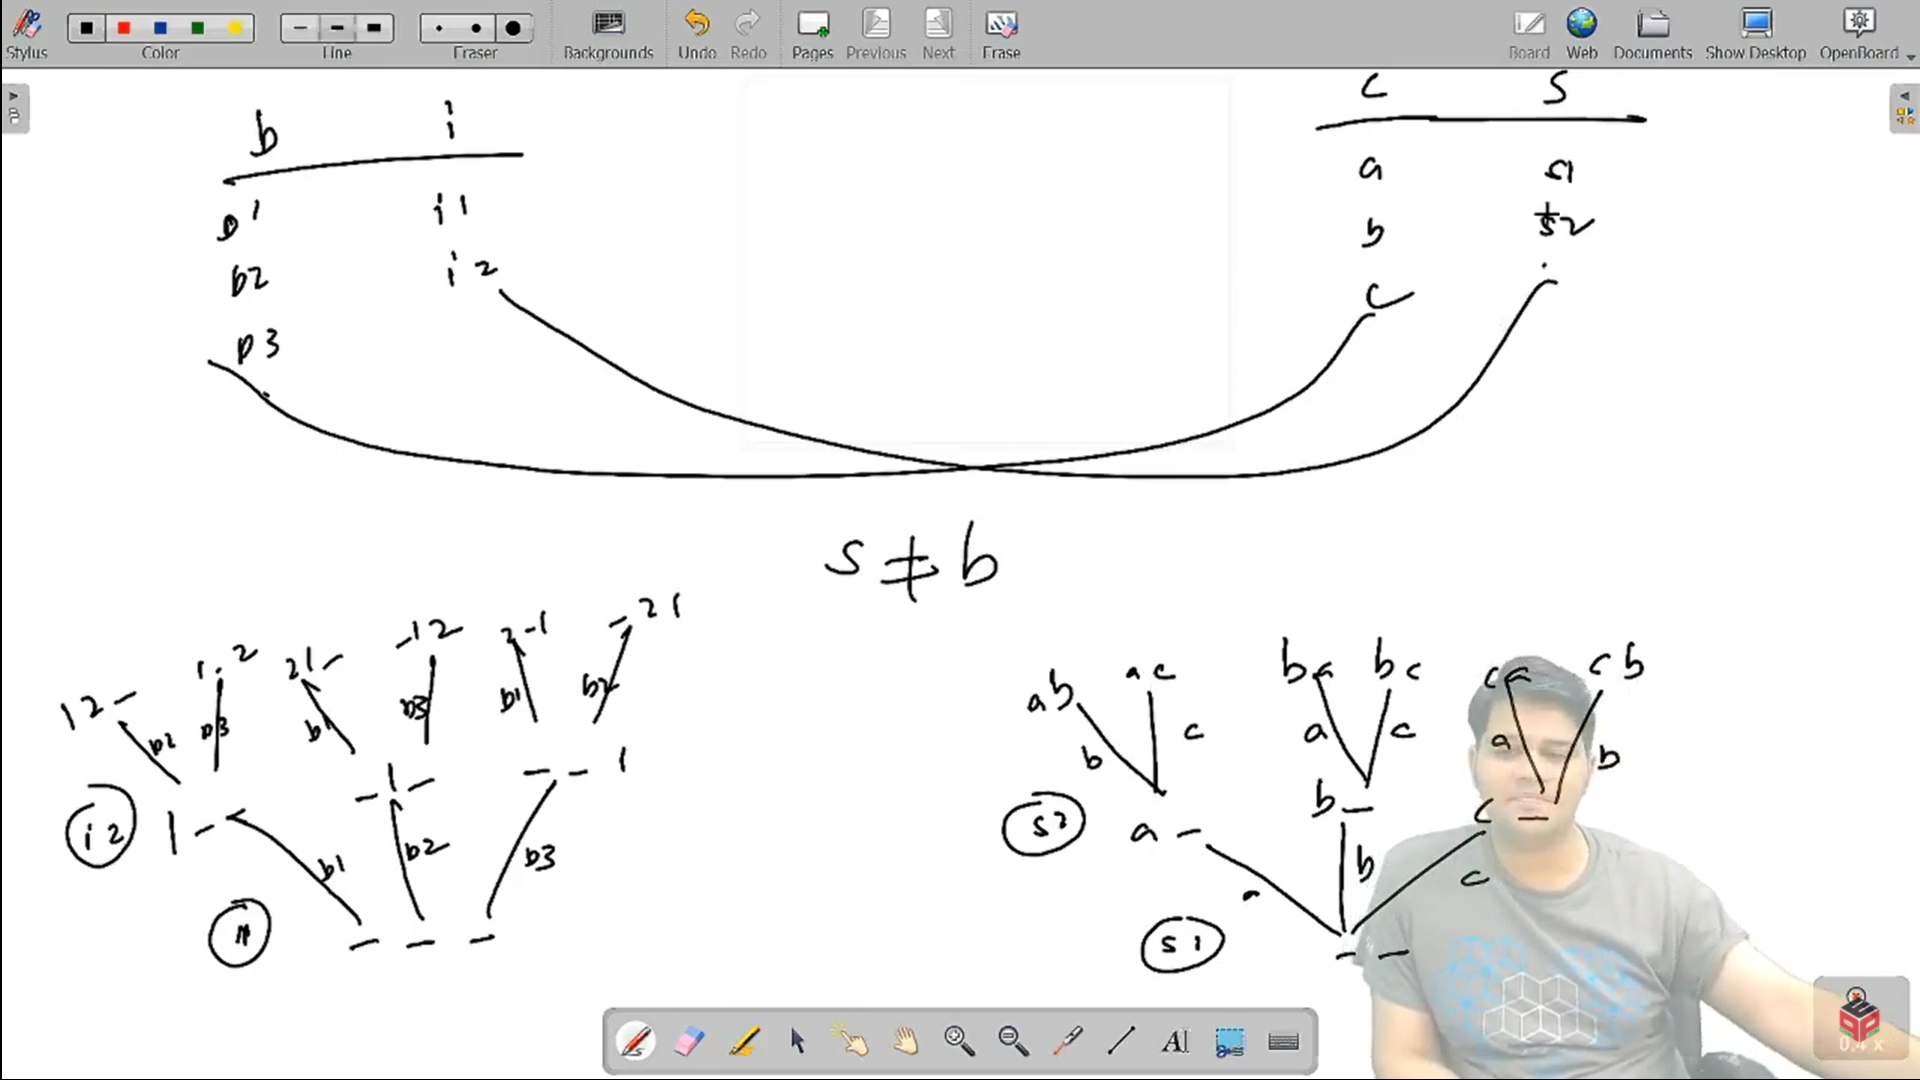 Stylus Color Line Eraser Backgrounds Undo Redo Pages Previous Next Erase Board Web Documents Show Desktop OpenBoard
b i
b1 i1
b2 i2
b3
c s
a s1
b s2
c
s ≠ b
12- 1-2 21- -12 2-1 -21
b2 b3 b1 b3 b1 b2
i2 1-- -1- --1
b1 b2 b3
i1 - - -
ab ac ba bc ca cb
b c a c a b
s2 a - b - c -
a b c
s1 - -
0.4 x